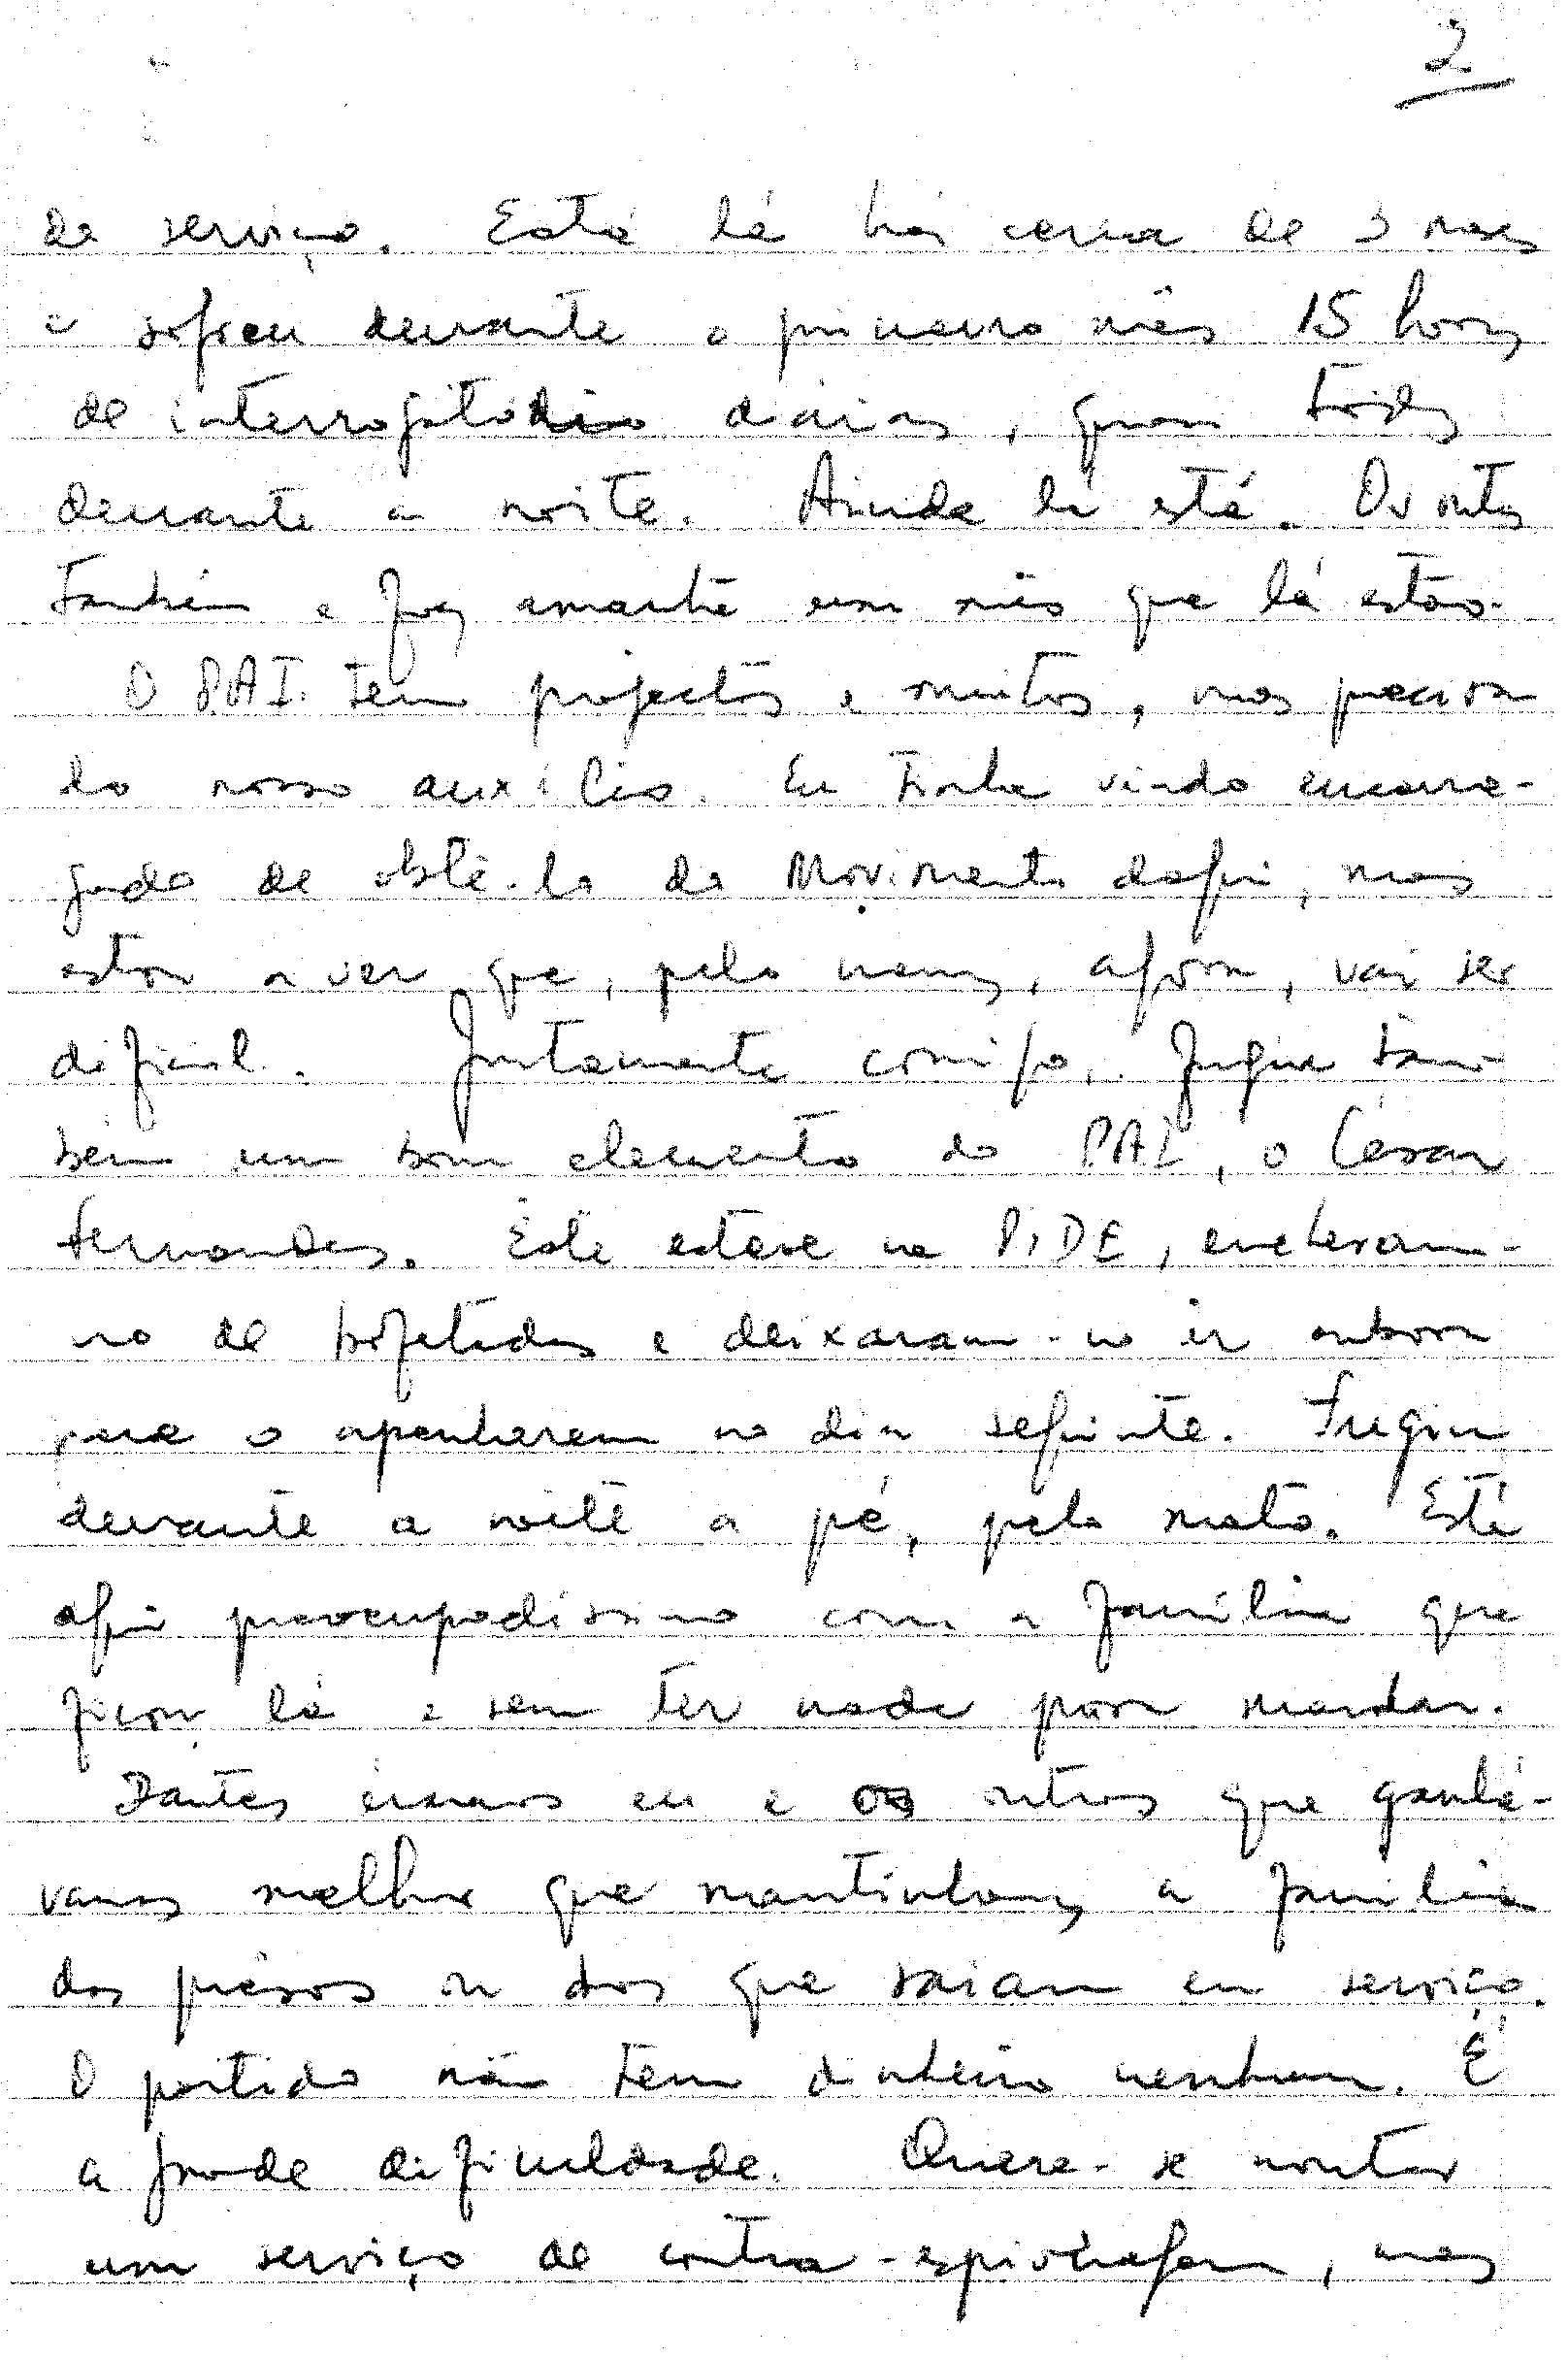 2
de serviço. Está lá há cerca de 3 meses
e sofreu durante o primeiro mês 15 horas
de interrogatório diárias, quasi todas
durante a noite. Ainda lá está. Os outros
também e faz amanhã um mês que lá estão.
O P.A.I. tem projectos e muitos, mas precisa
do nosso auxílio. Eu tinha vindo encarre-
gado de obtê-lo do Movimento daqui, mas
estou a ver que, pelo menos, agora, vai ser
difícil. Juntamente comigo, fugiu tam-
bém um bom elemento do P.A.I., o César
Fernandes. Este esteve na PIDE, encheram-
no de bofetadas e deixaram-no ir embora
para o apanharem no dia seguinte. Fugiu
durante a noite a pé, pelo mato. Está
aqui preocupadíssimo com a família que
ficou lá e sem ter nada para mandar.
Dantes éramos eu e os outros que ganhá-
vamos melhor que mantínhamos a família
dos prêsos ou dos que saiam em serviço.
O partido não tem dinheiro nenhum. É
a grande dificuldade. Quere-se montar
um serviço de contra-espionagem, mas